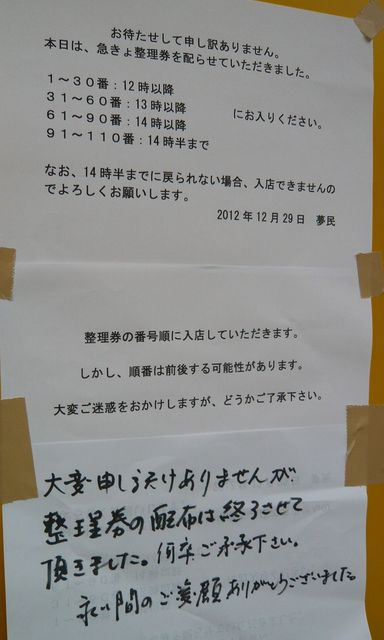 お待たせして申し訳ありません。
本日は、急きょ整理券を配らせていただきました。
1～30番：12時以降
31～60番：13時以降
61～90番：14時以降
91～110番：14時半まで
にお入りください。
なお、14時半までに戻られない場合、入店できませんの
でよろしくお願いします。
2012年12月29日 夢民
整理券の番号順に入店していただきます。
しかし、順番は前後する可能性があります。
大変ご迷惑をおかけしますが、どうかご了承下さい。
大変申し訳けありませんが
整理券の配布は終了させて
頂きました。何卒ご了承下さい。
永い間のご愛顧ありがとうございました。